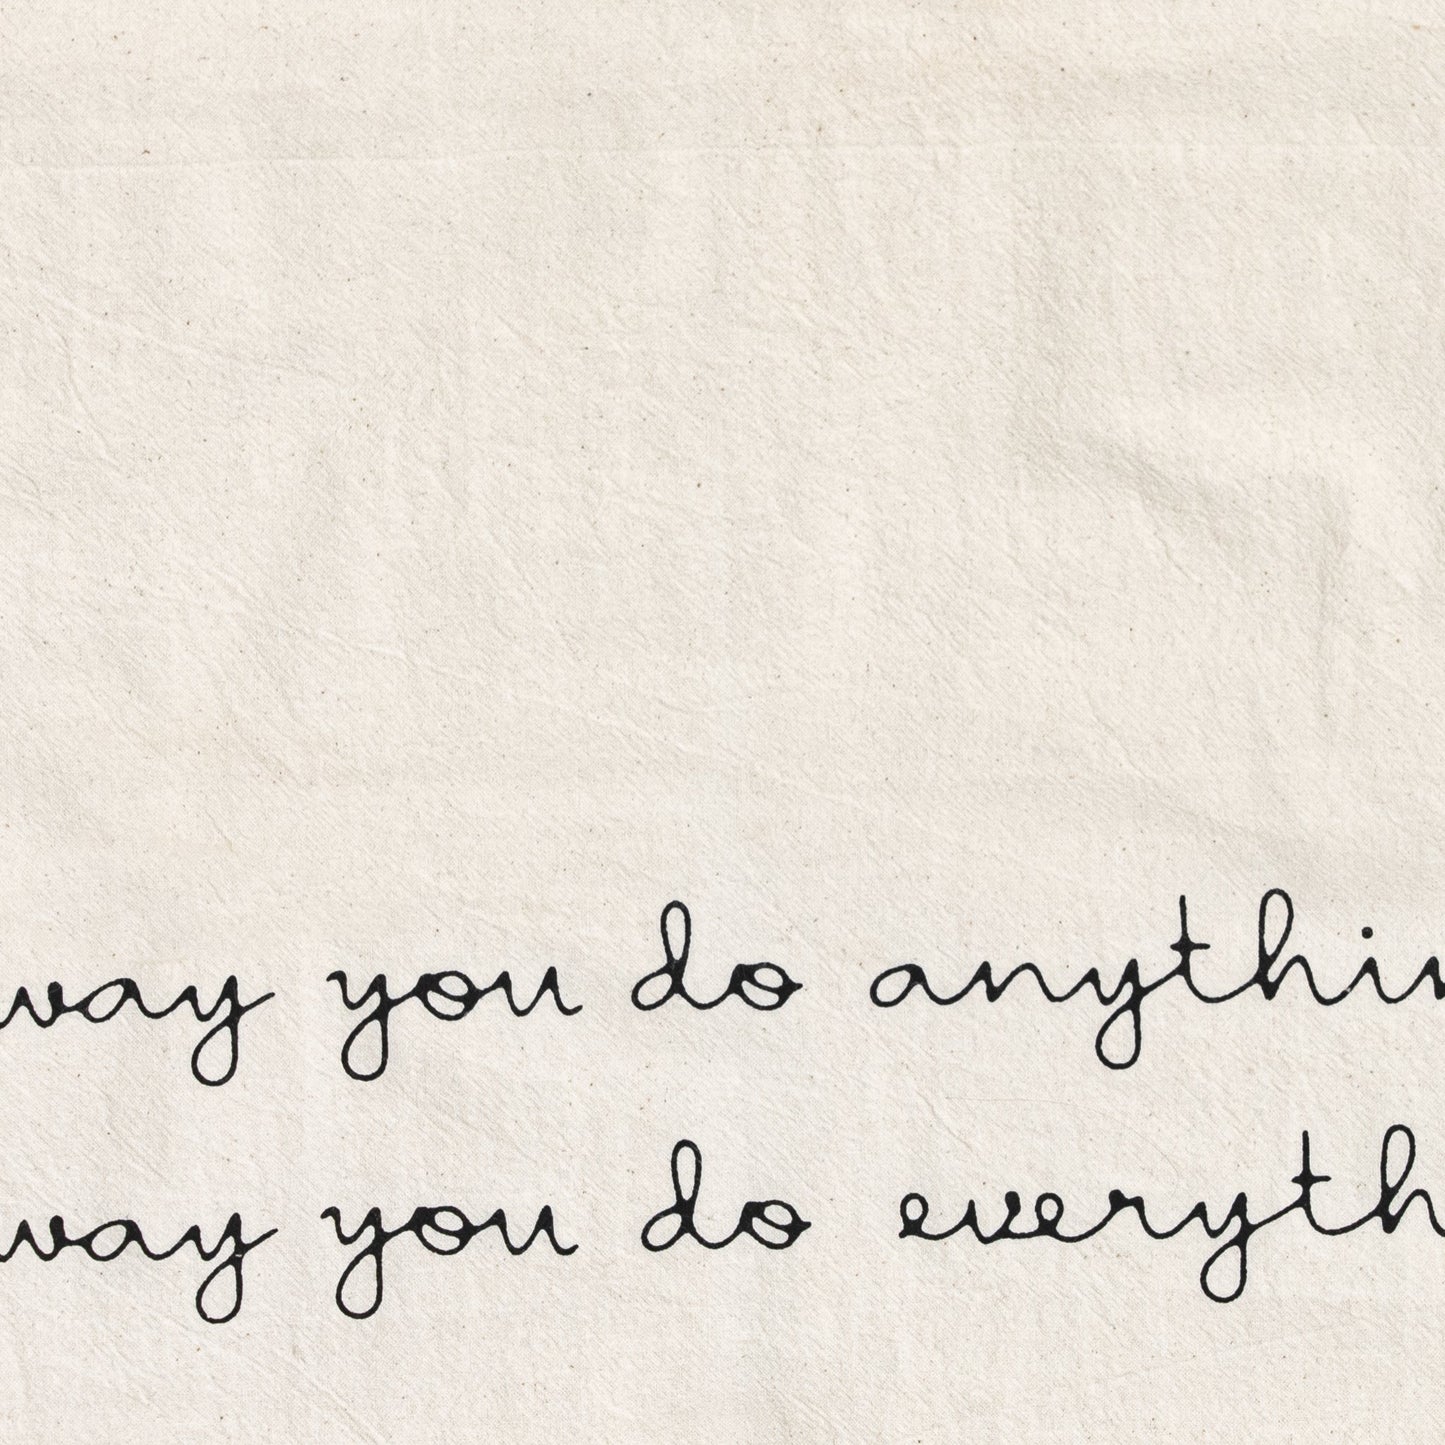 way you do anythin
way you do everyth